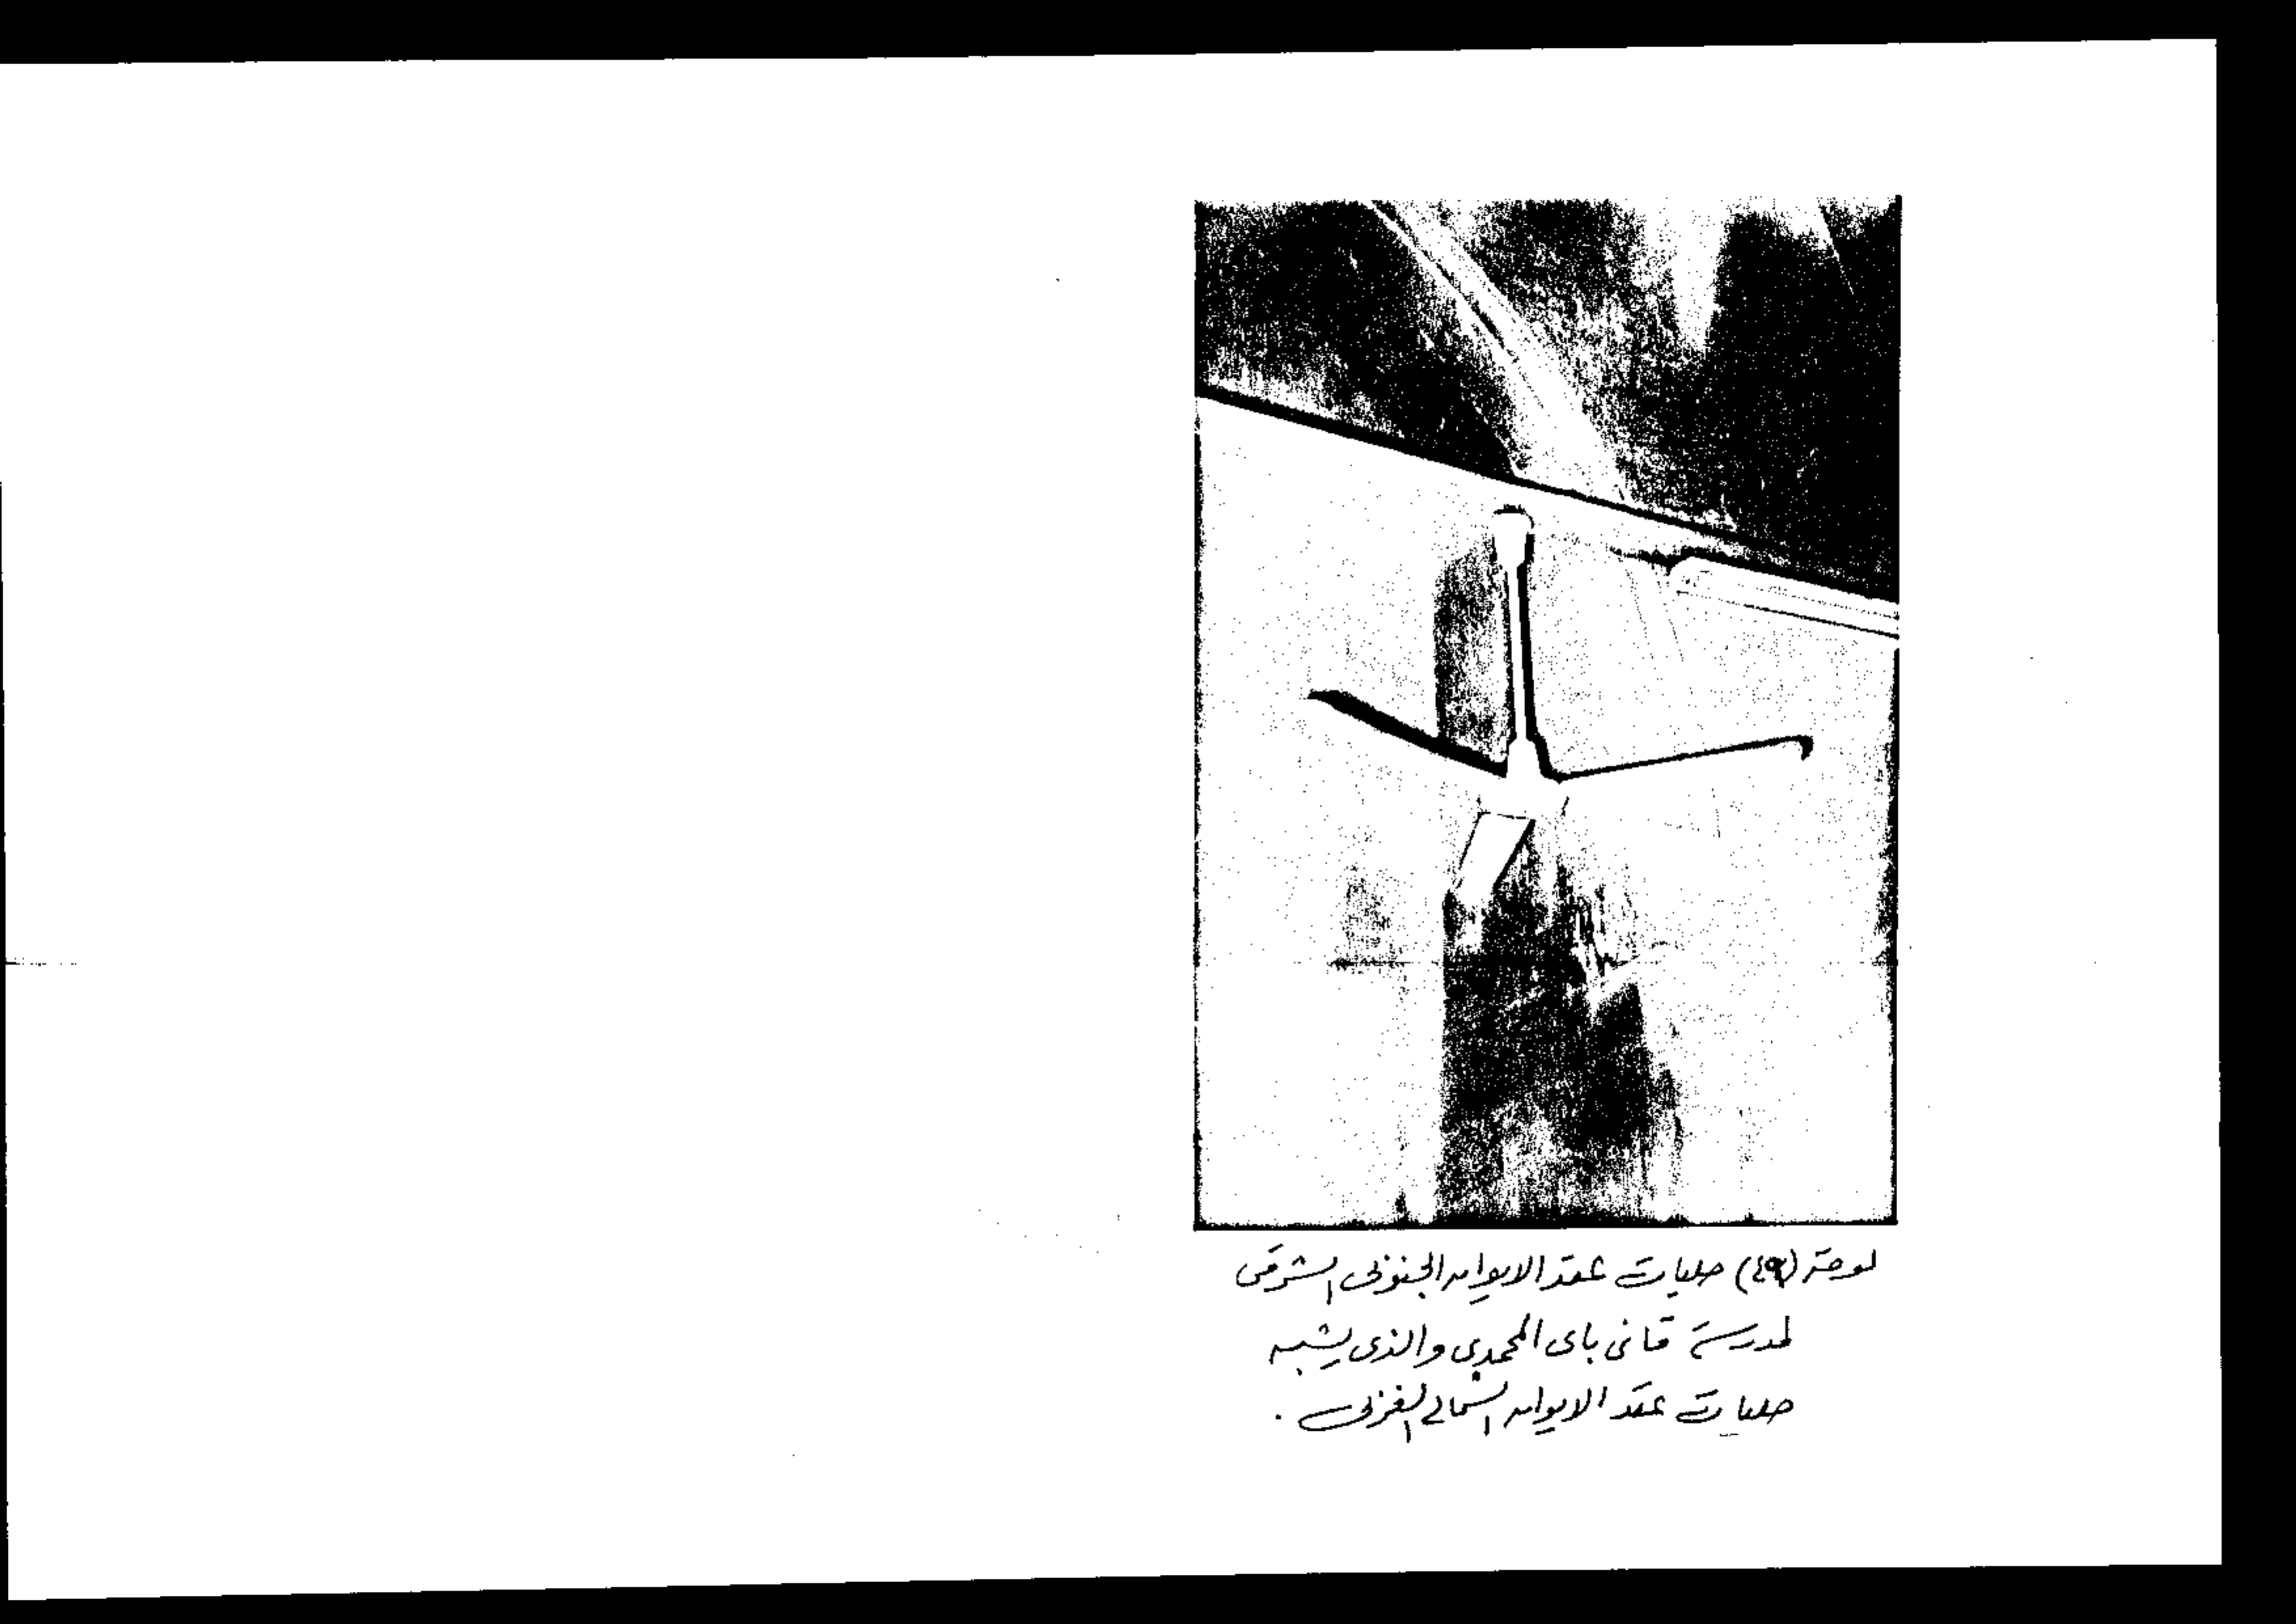 لوحة (٤٩) حليات عقد الايوان الجنوبى الشرقى
لمدرسة قانى باى المحمدى والذى يشبه
حليات عقد الايوان الشمالى الغربى .